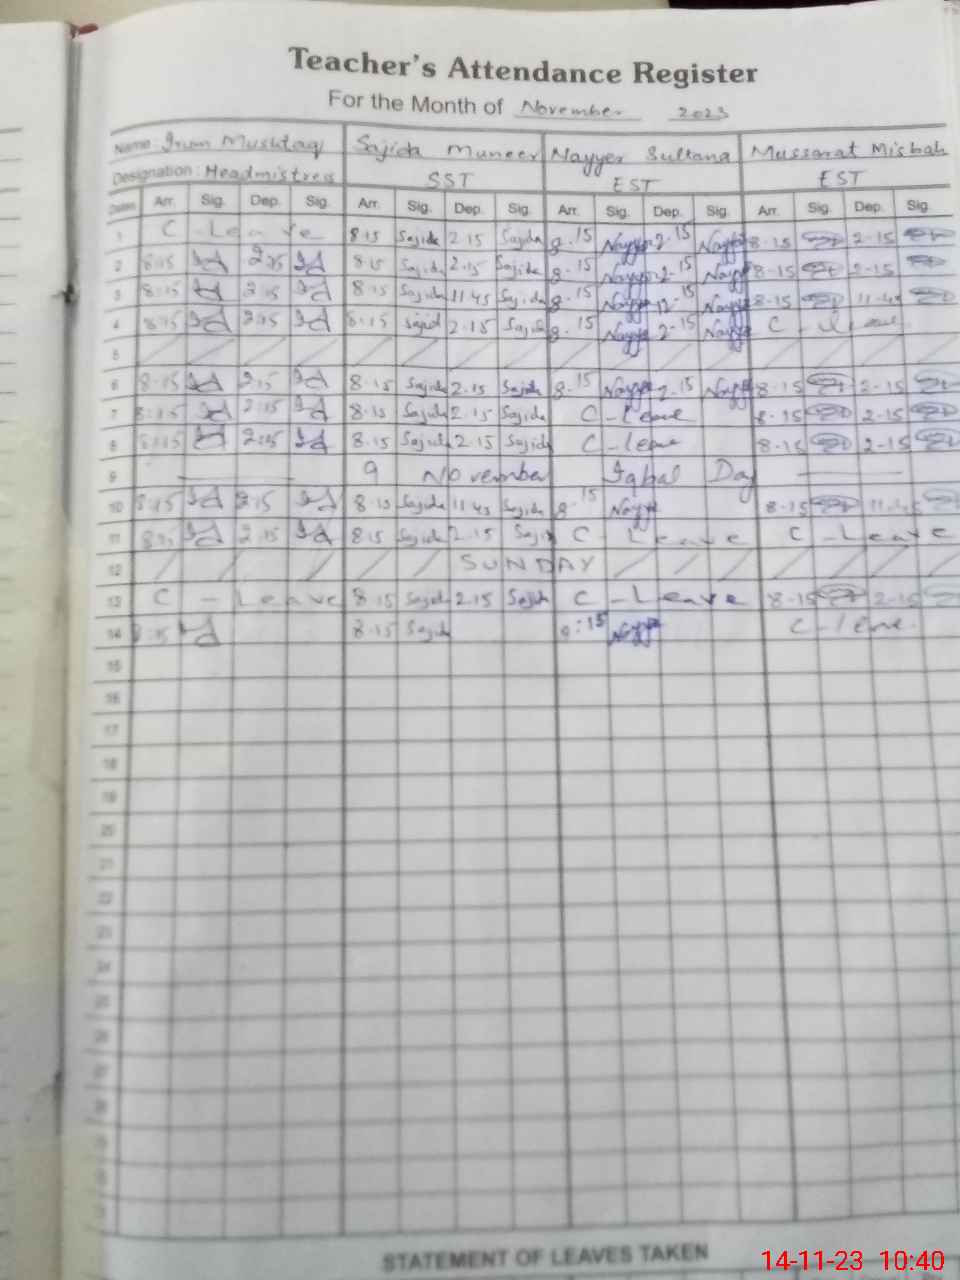 Teacher's Attendance Register
For the Month of November 2023
Name: Irum Mushtaq Sajida Muneer Nayyer Sultana Mussarat Misbah
Designation: Headmistress SST EST EST
Dates Arr. Sig. Dep. Sig. Arr. Sig. Dep. Sig. Arr. Sig. Dep. Sig. Arr. Sig. Dep. Sig.
1 C-Leave 8.15 Sajida 2.15 Sajida 8.15 Nayyer 2.15 Nayyer 8-15 2-15
2 8:15 2:15 8.15 Sajida 2.15 Sajida 8.15 Nayyer 2.15 Nayyer 8-15 2-15
3 8:15 2:15 8.15 Sajida 11.45 Sajida 8.15 Nayyer 12.15 Nayyer 8-15 11-45
4 8:15 2:15 8.15 Sajid 2.15 Sajida 8.15 Nayyer 2.15 Nayyer C-Leave
5
6 8:15 2:15 8.15 Sajida 2.15 Sajida 8.15 Nayyer 2.15 Nayyer 8-15 2-15
7 8:15 2:15 8.15 Sajida 2.15 Sajida C-Leave 8-15 2-15
8 8:15 2:15 8.15 Sajida 2.15 Sajida C-Leave 8-15 2-15
9 9 November Iqbal Day
10 8:15 2:15 8.15 Sajida 11.45 Sajida 8.15 Nayyer 8-15 11-45
11 8:15 2:15 8.15 Sajida 2.15 Sajida C-Leave C-Leave
12 SUNDAY
13 C-Leave 8.15 Sajid 2.15 Sajida C-Leave 8-15 2-15
14 8:15 8.15 Sajid 8:15 Nayyer C-leave
15
16
17
18
19
20
21
22
23
24
25
26
27
28
29
STATEMENT OF LEAVES TAKEN
14-11-23 10:40